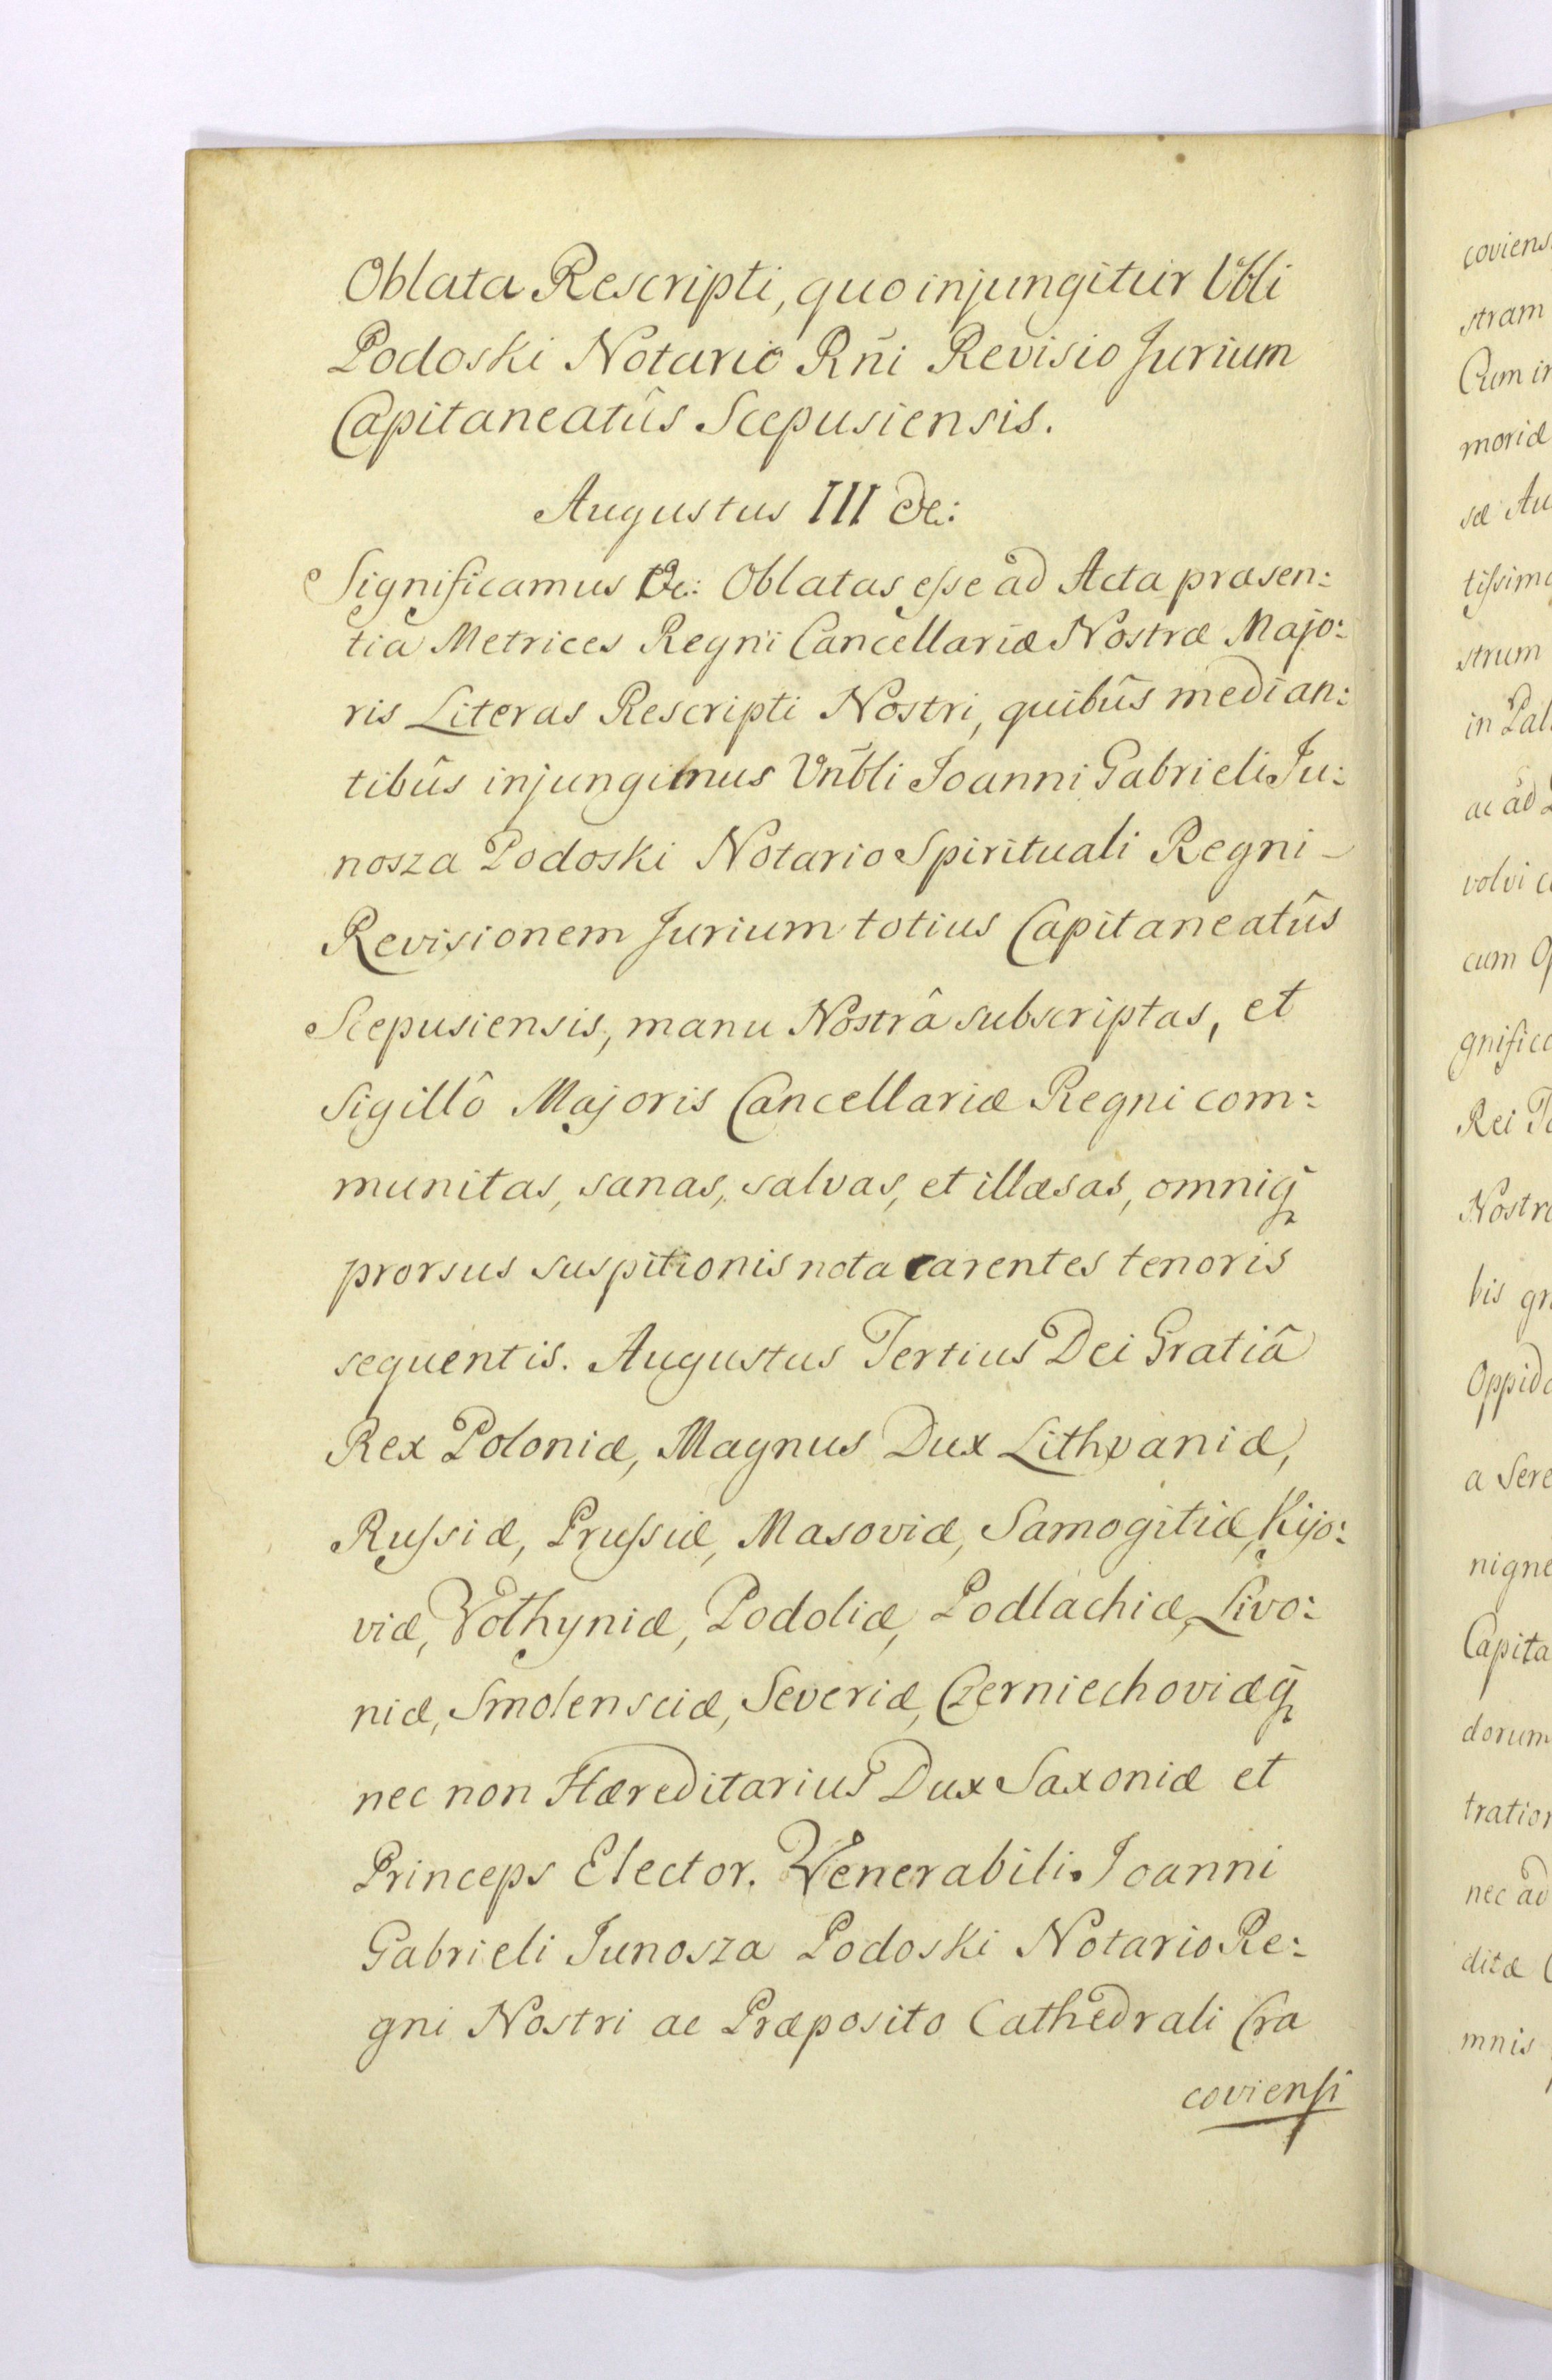 Oblata Rescripti, quo injungitur Vbli
Podoski Notario Rñi Revisio Jurium
Capitaneatûs Scepusiensis.
Augustus III &c:
Significamus &c: Oblatas esse ad Acta præsen:
tia Metrices Regni Cancellariæ Nostræ Majo:
ris Literas Rescripti Nostri, quibûs median:
tibûs injungimus Vnbli Joanni Gabrieli Ju:
nosza Podoski Notario Spirituali Regni –
Revisionem Jurium totius Capitaneatûs
Scepusiensis, manu Nostrâ subscriptas, et
Sigillô Majoris Cancellariæ Regni com:
munitas, sanas, salvas, et illæsas, omniq̃
prorsus suspitionis nota carentes tenoris
sequentis. Augustus Tertius Dei Gratiâ
Rex Poloniæ, Magnus Dux Lithvaniæ,
Russiæ, Prussiæ, Masoviæ, Samogitiæ, Kijo:
viæ, Volhyniæ, Podoliæ, Podlachiæ, Livo:
niæ, Smolensciæ, Severiæ, Czerniechoviæq̃
nec non Hæreditarius Dux Saxoniæ et
Princeps Elector. Venerabili. Joanni
Gabrieli Junosza Podoski Notario Re:
gni Nostri ac Præposito Cathedrali Cra
coviensi
coviens
stram
Cum in
moriæ
sæ Au
tissima
strum
in Pal
ac ad
volvi c
cum Op
gnifica
Rei
Nostr
bis gr
Oppid
a Sere
nigne
Capita
dorum
tration
nec ad
ditæ
mnis